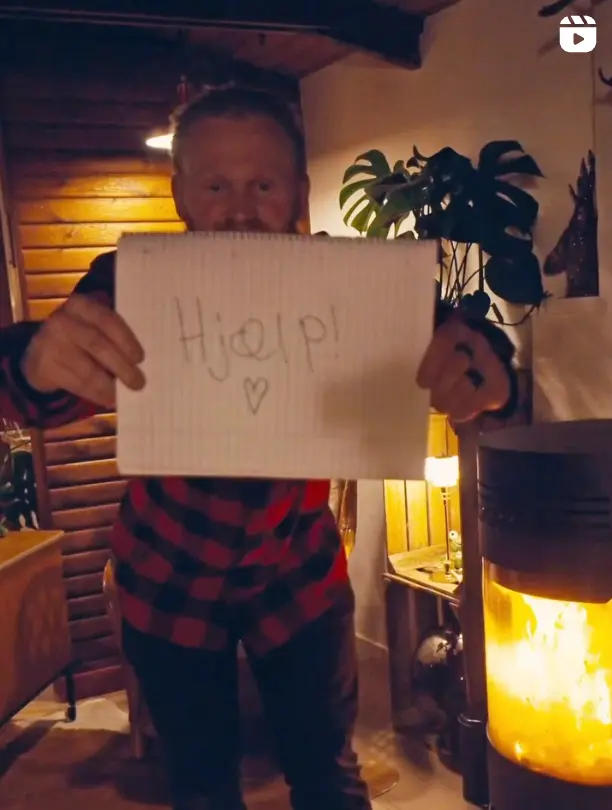 Hjælp!